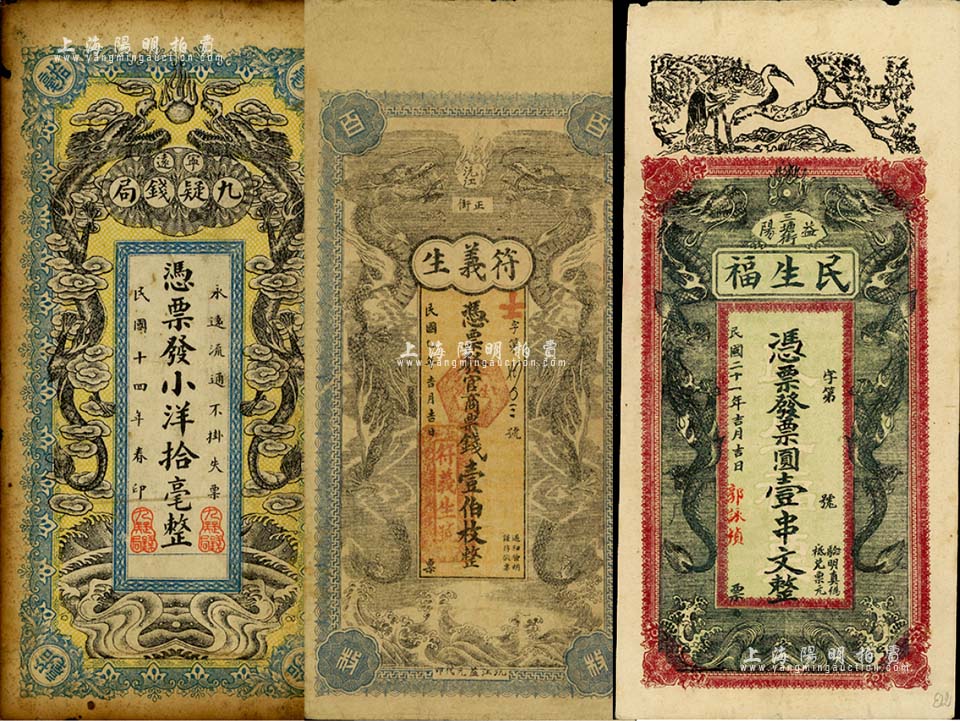 上海陽明拍賣
www.yangmingauction.com
拾毫
拾毫
寧遠
九疑錢局
永遠流通不掛失票
憑票發小洋拾毫整
民國十四年春印
拾毫
百
百
沅江
正街
符義生
字第
號
憑票
官商票錢壹伯枚整
民國
吉月吉日
票
枚
枚
沅江益元代印
上海陽明拍賣
www.yangmingauction.com
益陽
三堡街
民生福
字第
號
憑票發票圓壹串文整
民國二十年吉月吉日
票
上海陽明拍賣
www.yangmingauction.com